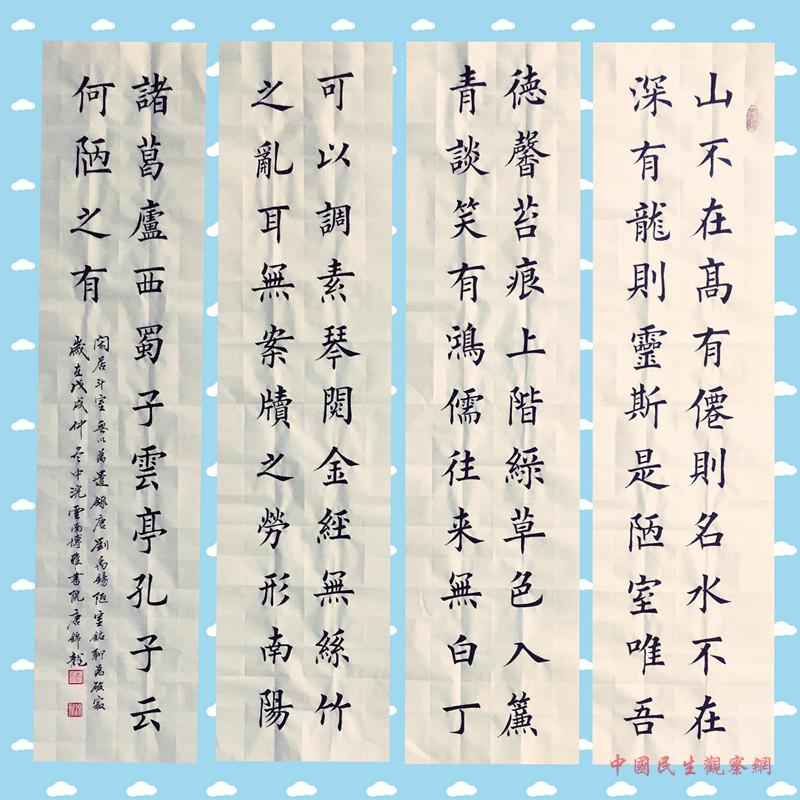 山不在髙有僊則名水不在
深有龍則靈斯是陋室唯吾
徳馨苔痕上階緑草色入簾
青談笑有鴻儒往来無白丁
可以調素琴閲金經無絲竹
之亂耳無案牘之勞形南陽
諸葛廬西蜀子雲亭孔子云
何陋之有
閑居斗室無以為遣録唐劉禹錫陋室銘聊為破寂
歲在戊戌仲冬中浣雲南博雅書院唐錦龍
中國民生觀察網